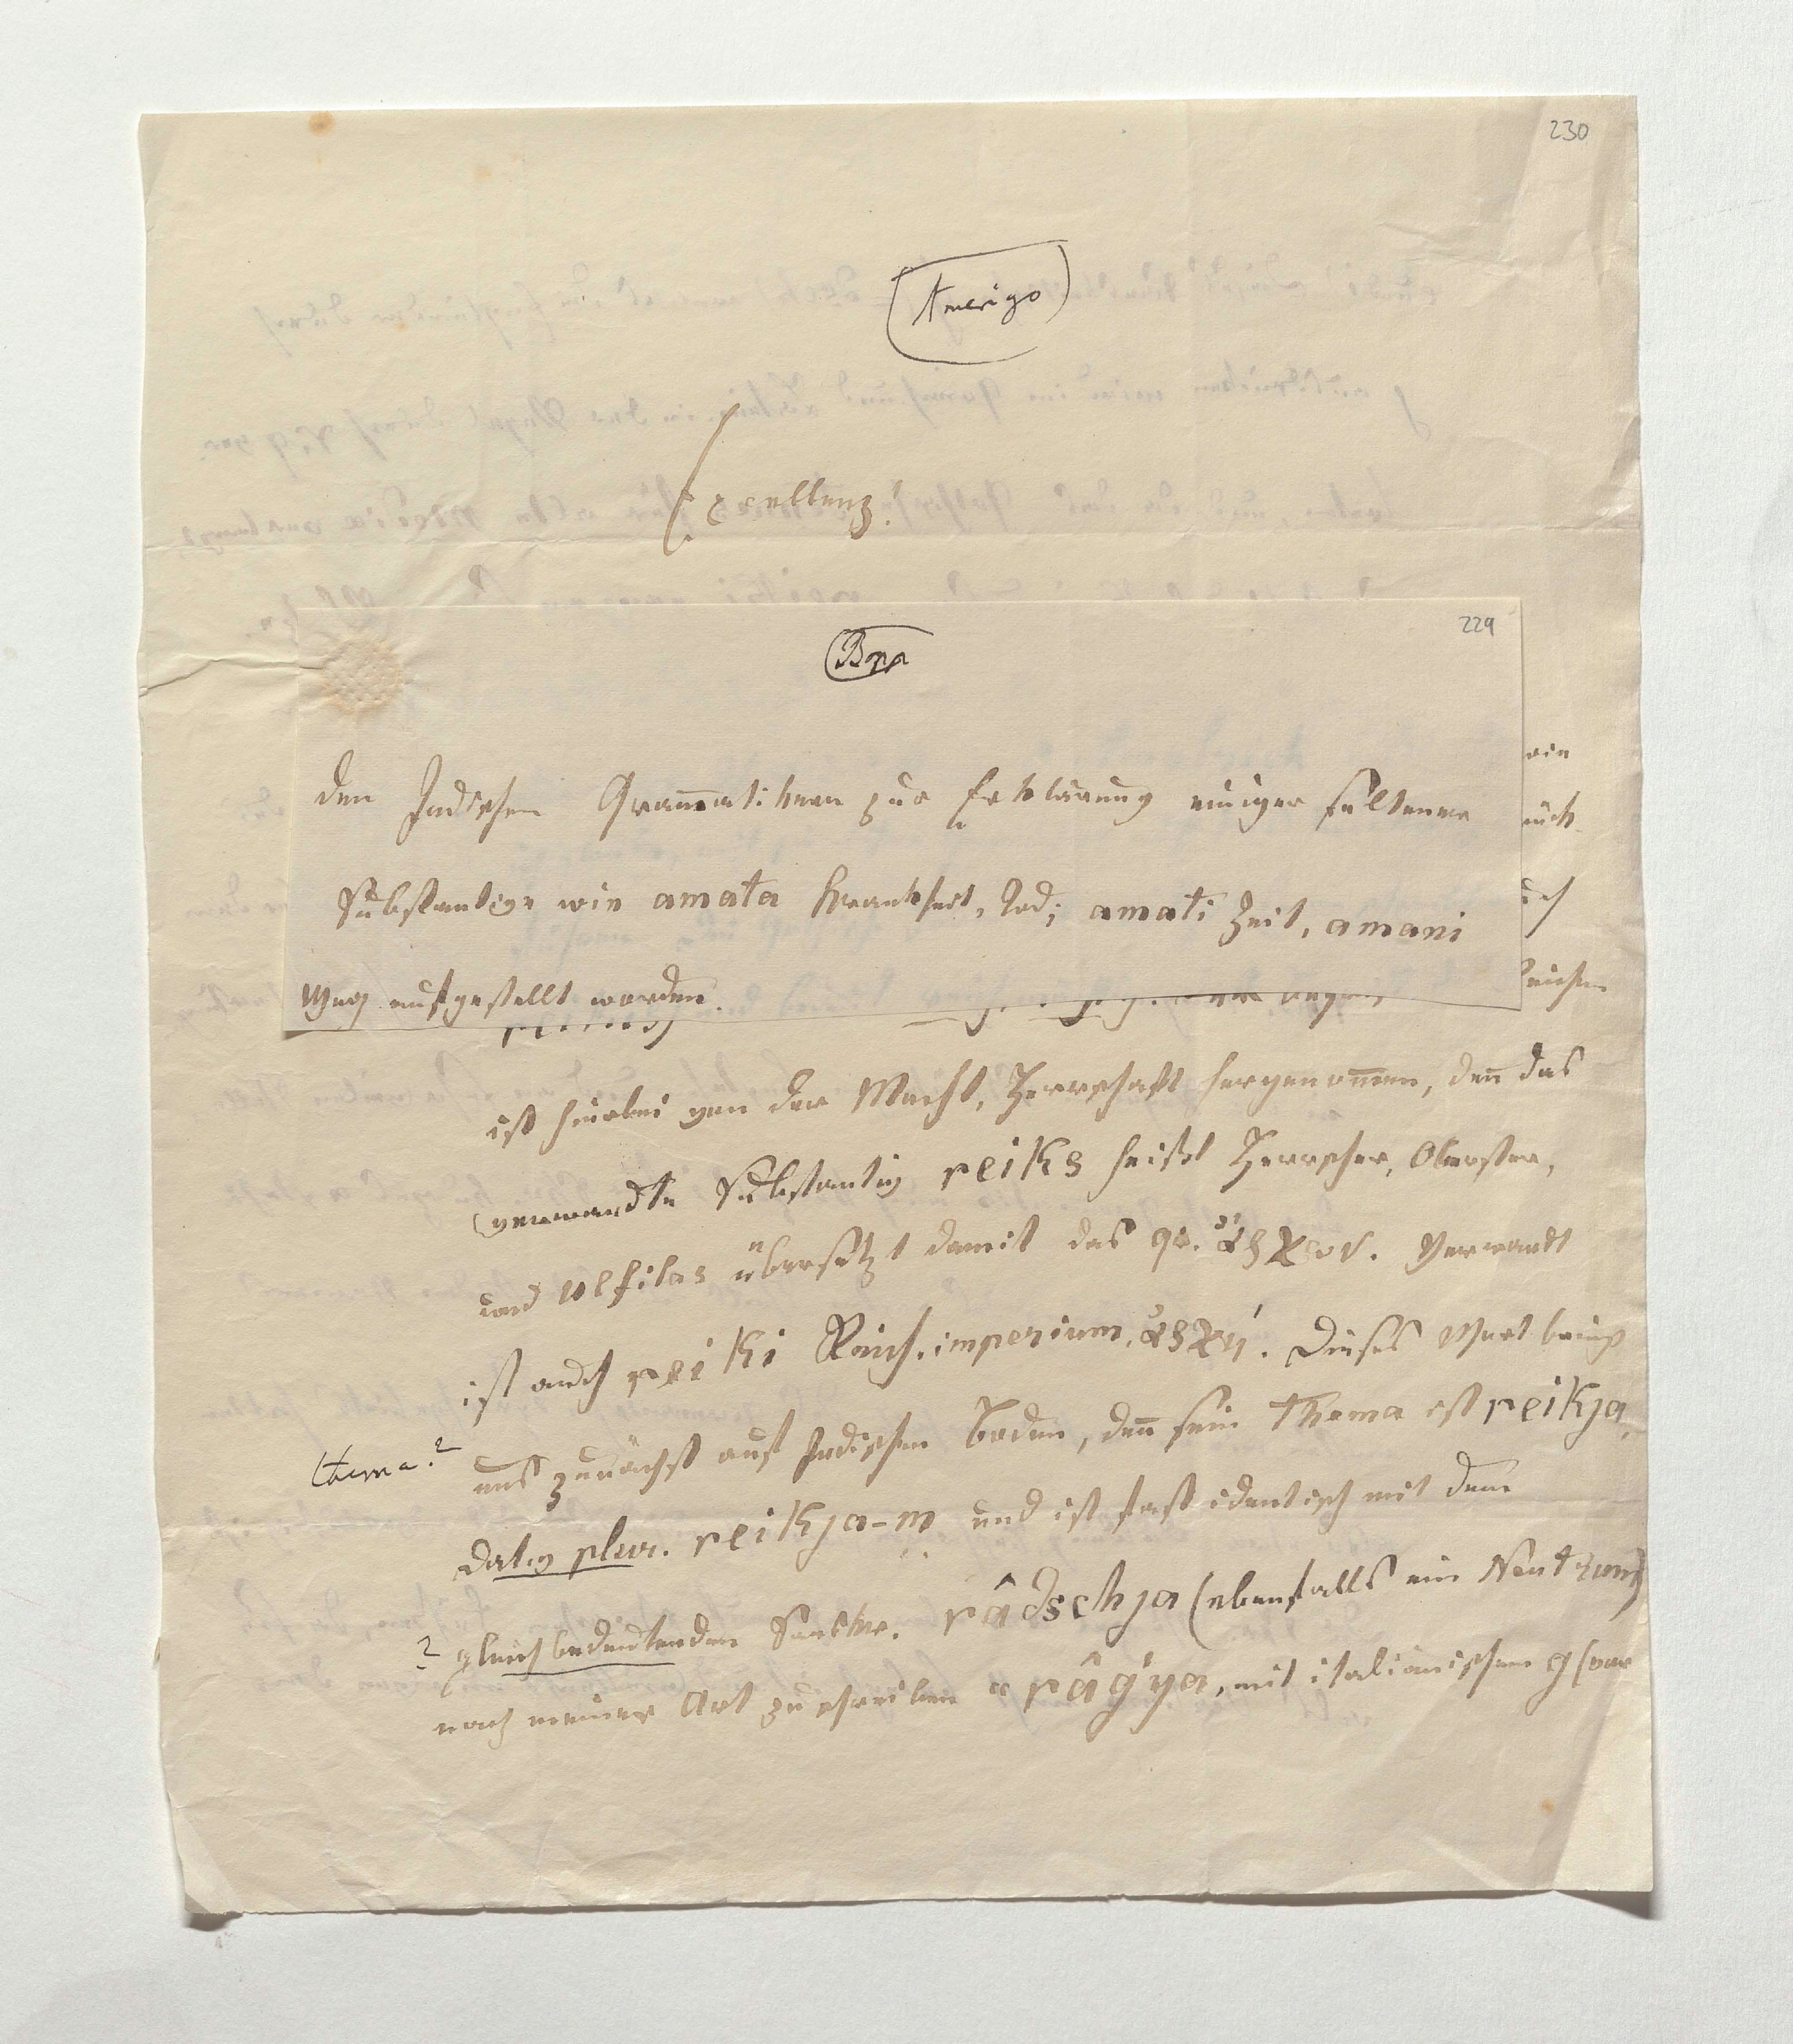 230
Amerigo
Excellenz!
229
Bopp
den Indischen Gram̄atikern zur Erklärung einiger seltener
Substantive wie amata Krankheit, Tod; amati Zeit, amani
Weg aufgestellt worden.
ist hierbei von der Macht, Herrschaft hergenom̄en, den̄ das
verwandte Substantiv reiks heißt Herrscher, Oberster,
und Ulfilas übersetzt damit das gr. ἄρχων. Verwandt
ist auch reiki Reich, imperium, ἀρχή. Dieses Wort bringt
uns zunächst auf Indischen Boden, den̄ sein Thema ist reikja,
thema?
dativ plur. reikja-m und ist fast identisch mit dem
? gleichbedeutenden Sanskr. râdschja (ebenfalls ein Neutrum)
nach meiner Art zu schreiben râǵya, mit italiänischem g (vor